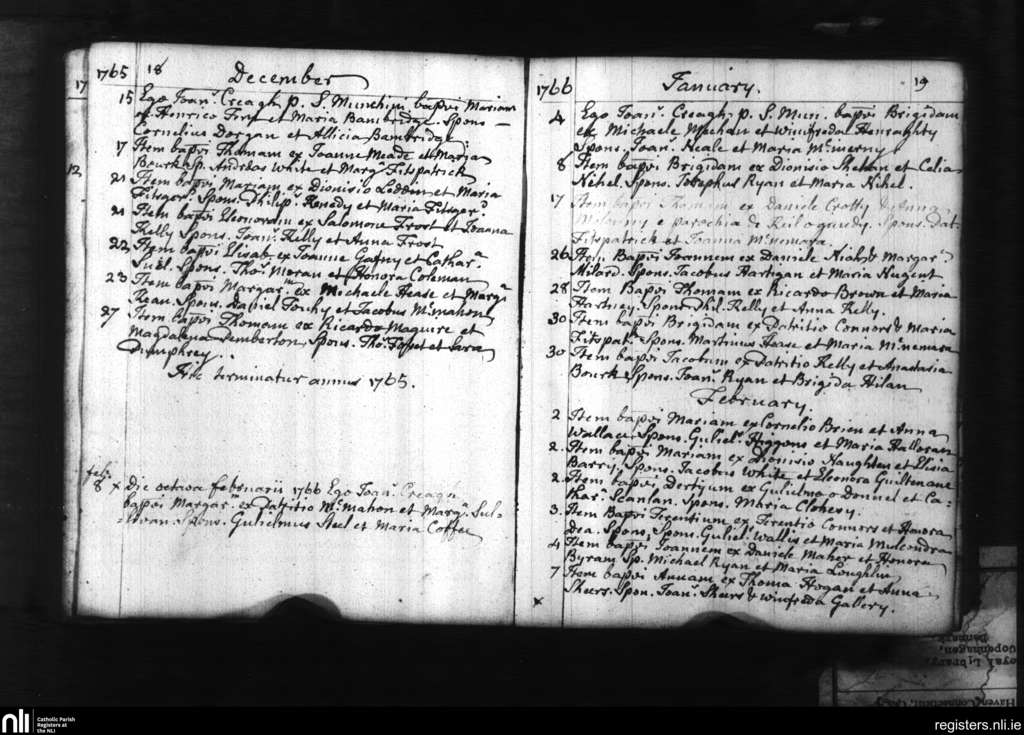 17
12
1765 18 December
15 Ego Joan.s Creagh p. S. Munchini bapvi Mariam
ex Henrico et Maria Bambridge. Spons
Cornelius Dorgan et Allicia Bambridge
17 Item bapvi Thomam ex Joanne Meade et Maria
Bourk Sp. Andreas White et Marg.a Fitspatrick
21 Item bapvi Mariam ex Dionisio et Maria
Fitsger.d Spons. Philip.s Kenedy et Maria Fitsger.d
21 Item bapvi Eleonoram ex Salomone Frost et Joanna
Kelly Spons. Joan.s Kelly et Anna Frost
22 Item bapvi Elisab. ex Joanne Gafny et Cathar.a
Spons. Tho.s Moran et Honora Coleman
23 Item bapvi Margar.m ex Michaele Hease et Marg.a
Spons. Daniel et Jacobus McMahon
27 Item bapvi Thomam ex Ricardo Maguire et
Magdalena Pemberton, Spons. Tho.s et Sara
Dumphrey.
Hic terminatur annus 1765.
feb:
8 x Die octava februarii 1766 Ego Joan.s Creagh
bapvi Margar.m ex Patritio McMahon et Marg.a Sul-
-livan. Spons. Gulielmus et Maria Coffee
1766 January. 19
4 Ego Joan.s Creagh p. S. Mun. bapvi Brigidam
ex Michaele Meehan et Winifreda Henraghty
Spons. Joan. Neale et Maria McInerny
8 Item bapvi Brigidam ex Dionisio Shehan et Celia
Nihel. Spons. Josephus Ryan et Maria Nihel.
17 Item bapvi Thomam ex Daniele Crotty & Anna
e parochia de Spons. Pat.
Fitspatrick et Joanna McNemara.
26 Item Bapvi Joannem ex Daniele & Margar.a
Milard. Spons. Jacobus Hartigan et Maria Nugent
28 Item Bapvi Thomam ex Ricardo Brown et Maria
Hartney. Spons. Phil. Kelly et Anna Kelly.
30 Item bapvi Brigidam ex Patritio Connors & Maria
Fitspat.k Spons. Martinus Hease et Maria McNemara
30 Item bapvi Jacobum ex Patritio Kelly et Anastasia
Bourk Spons. Joan.s Ryan et Brigida Hilan
February.
2 Item bapvi Mariam ex Cornelio Brien et Anna
Wallace Spons. Guliel. Higgons et Maria Halloran
2. Item bapvi Mariam ex Dionisio Naughten et
Barry, Spons. Jacobus White et Eleonora
2. Item bapvi ex Gulielmo o donnel et Ca-
thar. Scanlan. Spons. Maria Clohesy.
3. Item Bapvi Terentium ex Terentio Connors et Honora
Dea. Spons. Guliel. Wallis et Maria
4 Item bapvi Joannem ex Daniele Maher et Honora
Byram Sp. Michael Ryan et Maria Loughlin
7 Item bapvi Annam ex Thoma Hogan et Anna
Skeers. Spon. Joan. Skeers & Winifreda Gallery.
x
Royal Library,
Copenhagen,
Denmark
Haven, Connecticut,
nli Catholic Parish
Registers at
the NLI
registers.nli.ie